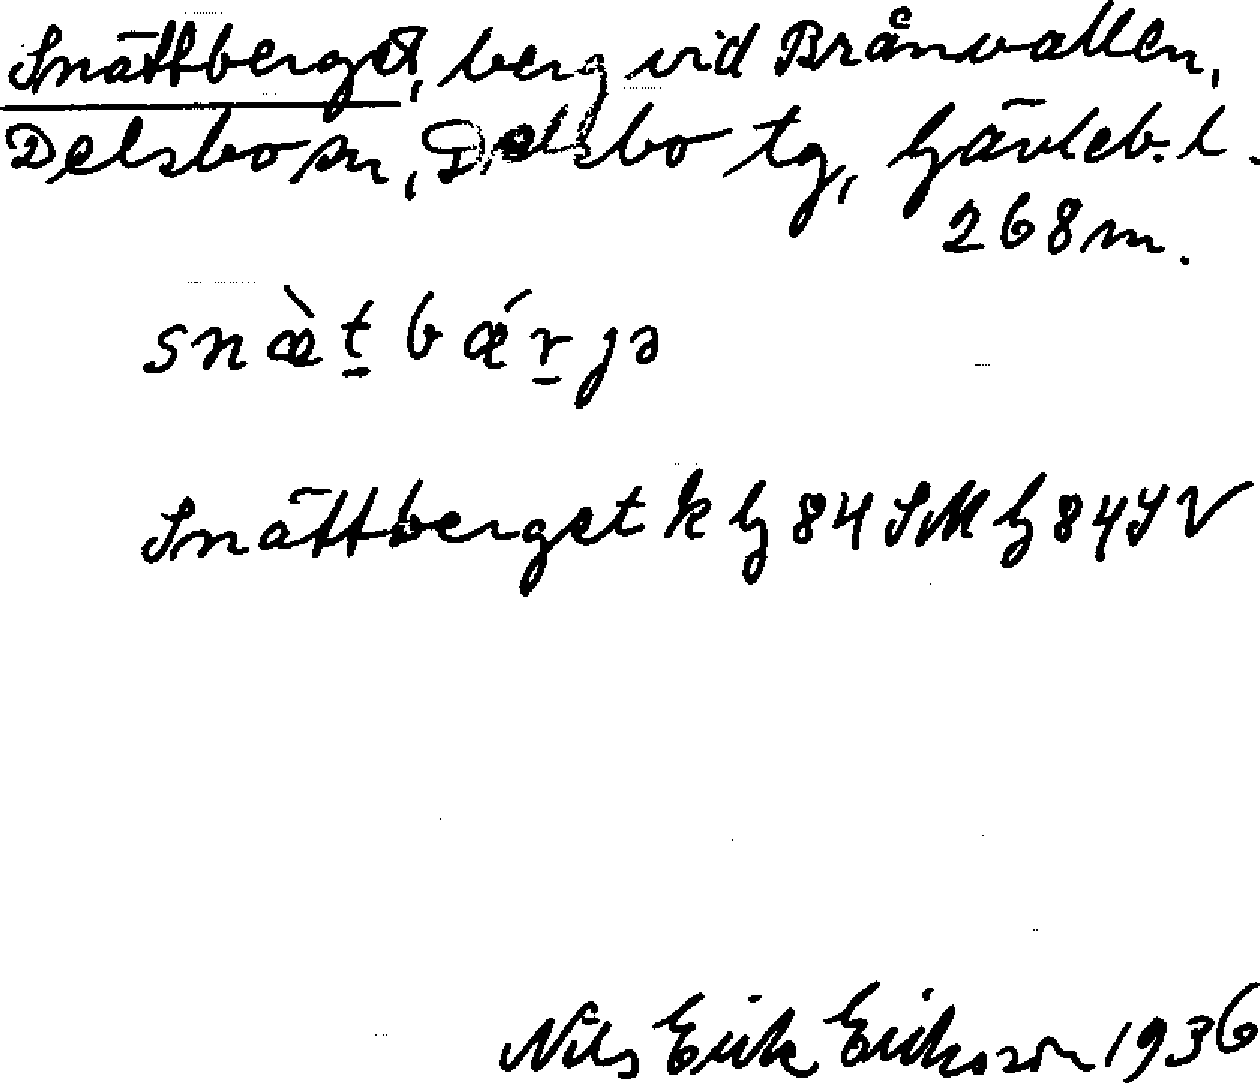 Snättberget, berg vid Brånvallen,
Delsbo sn, Delsbo tg, Gävleb. l.
268 m.
snæ̀t̠bǽr̠jə
Snättberget k G 84 SM G 84 SV
Nils Erik Eriksson 1936